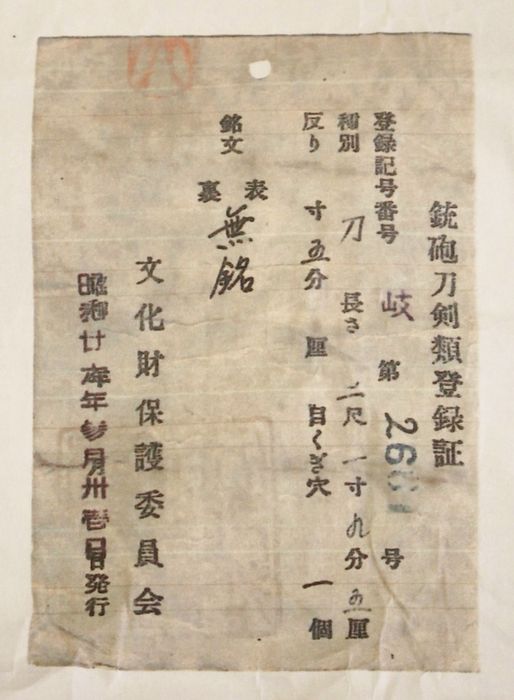 銃砲刀剣類登録証
登録記号番号 岐 第 号
種別 刀 長さ 二尺一寸九分五厘
反り 寸五分 厘 目くぎ穴 一個
銘文 表
裏 無銘
文化財保護委員会
昭和廿 年参月卅壱日発行